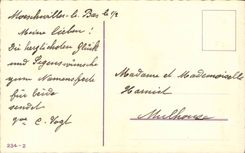 Morschwiller-le-Bas le 1/2
Meine lieben!
Die herzlichsten Glück
und Segenswünsche
zum Namensfeste
für beide
sendet
C. Vogt
Madame et Mademoiselle
Harnist
Mulhouse
234-2